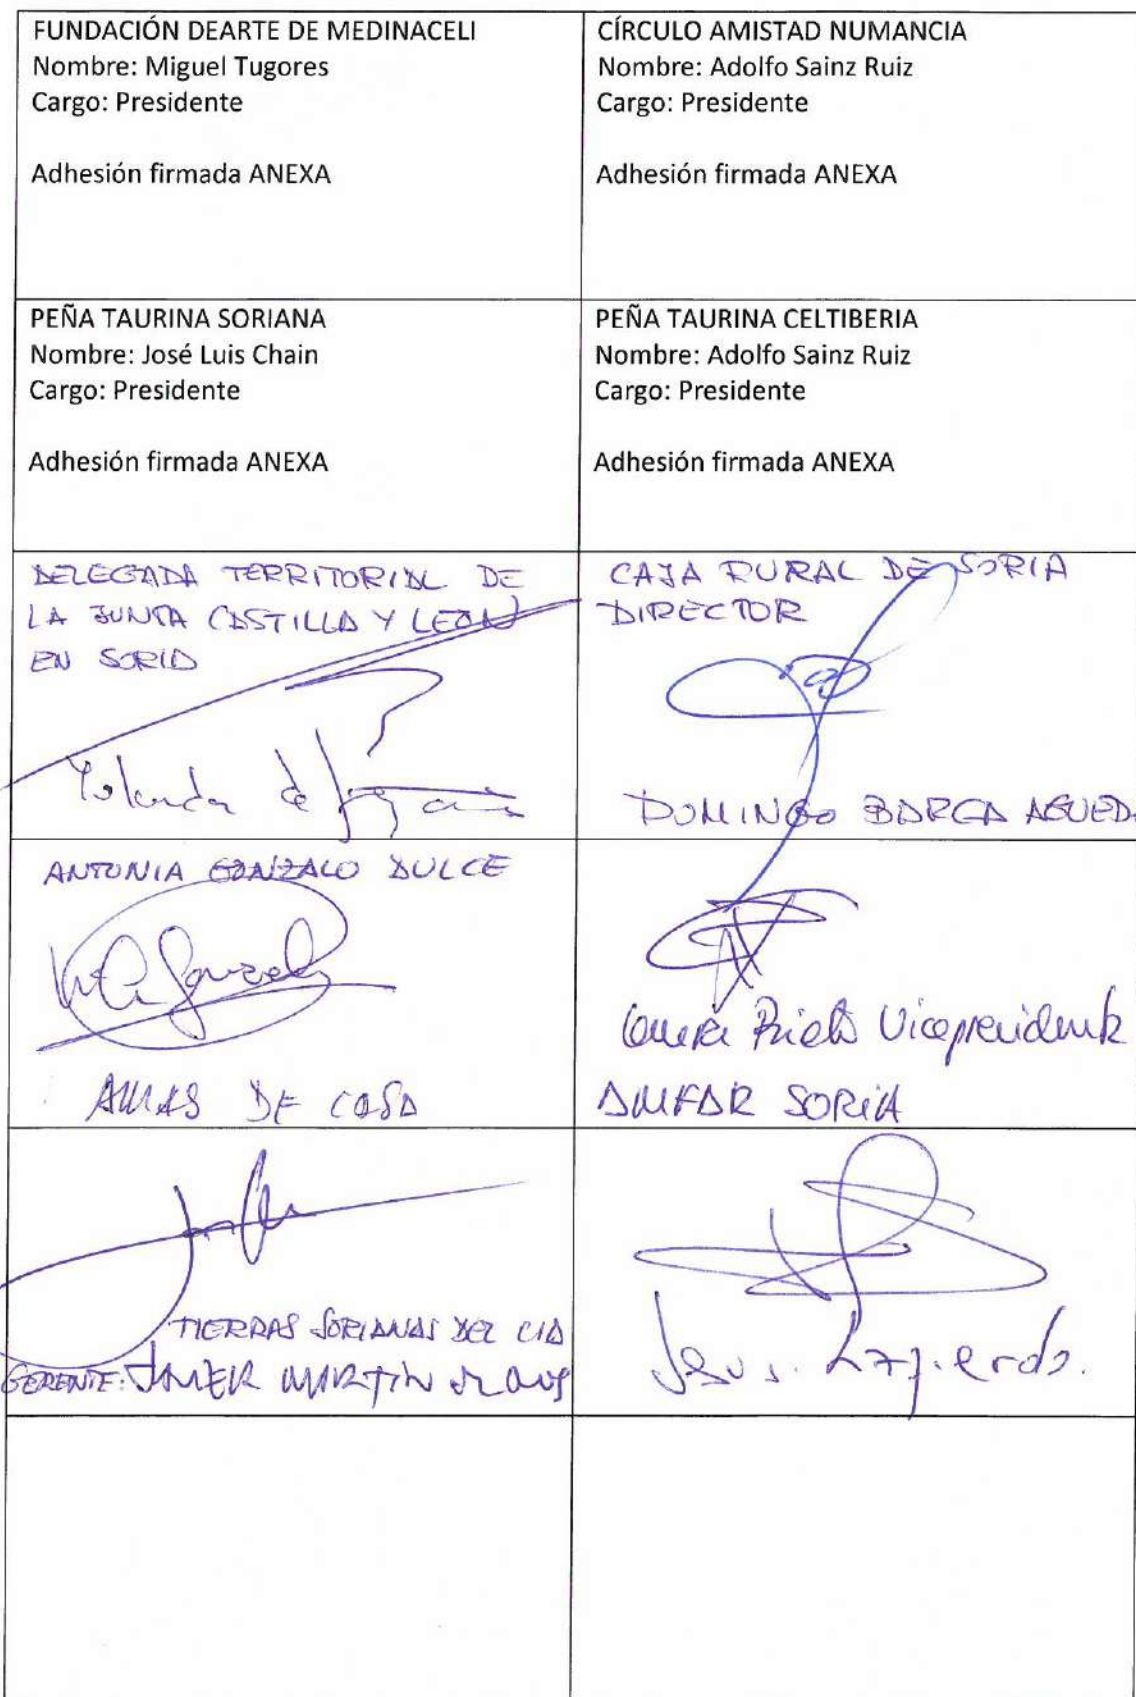 FUNDACIÓN DEARTE DE MEDINACELI
Nombre: Miguel Tugores
Cargo: Presidente
Adhesión firmada ANEXA
CÍRCULO AMISTAD NUMANCIA
Nombre: Adolfo Sainz Ruiz
Cargo: Presidente
Adhesión firmada ANEXA
PEÑA TAURINA SORIANA
Nombre: José Luis Chain
Cargo: Presidente
Adhesión firmada ANEXA
PEÑA TAURINA CELTIBERIA
Nombre: Adolfo Sainz Ruiz
Cargo: Presidente
Adhesión firmada ANEXA
DELEGADA TERRITORIAL DE
LA JUNTA CASTILLA Y LEON
EN SORIA
Yolanda de
CAJA RURAL DE SORIA
DIRECTOR
DOMINGO BARCA AGUEDA
ANTONIA GONZALO DULCE
AMAS DE CASA
Prieto Vicepresidenta
AMFAR SORIA
TIERRAS SORIANAS DEL CID
GERENTE: JAVIER MARTIN
Jesus. Izquierdo.